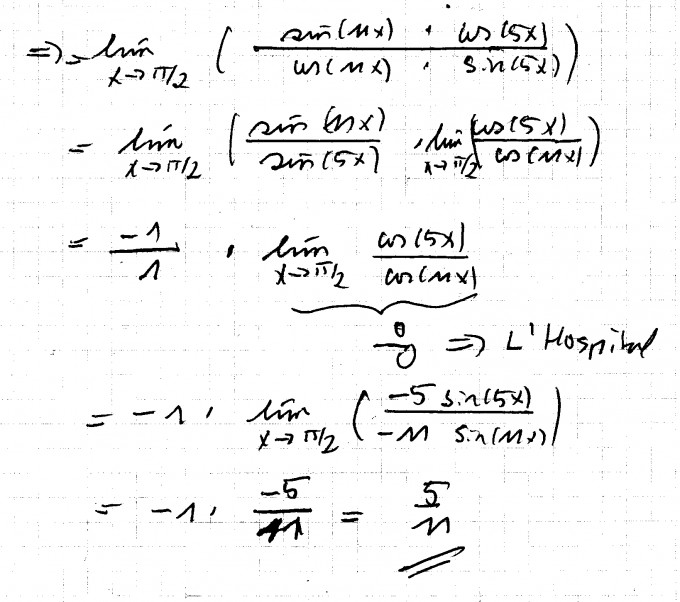 => = lim x→π/2 ( sin(11x) · cos(5x) / cos(11x) · sin(5x) )
= lim x→π/2 ( sin(11x) / sin(5x) · lim x→π/2 cos(5x) / cos(11x) )
= -1 / 1 · lim x→π/2 cos(5x) / cos(11x)
0/0 => L'Hospital
= -1 · lim x→π/2 ( -5 sin(5x) / -11 sin(11x) )
= -1 · -5 / 11 = 5 / 11